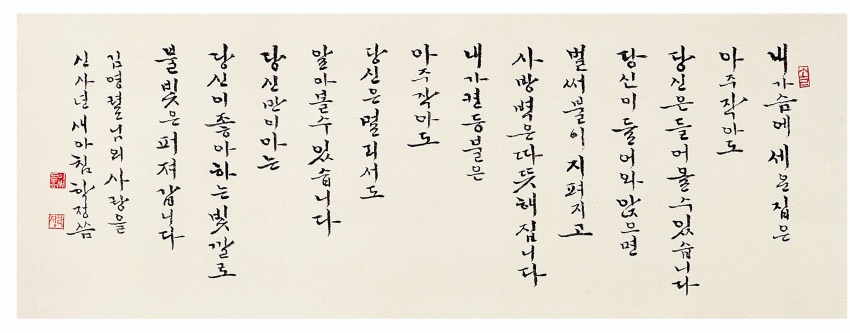 내 가슴에 세운 집은
아주 작아도
당신은 들어올 수 있습니다
당신이 들어와 앉으면
벌써 불이 지펴지고
사방 벽은 따뜻해집니다
내가 켠 등불은
아주 작아도
당신은 멀리서도
알아볼 수 있습니다
당신만이 아는
당신이 좋아하는 빛깔로
불빛은 퍼져 갑니다
김영렬님의 사랑을
신사년 새아침 한정 씀